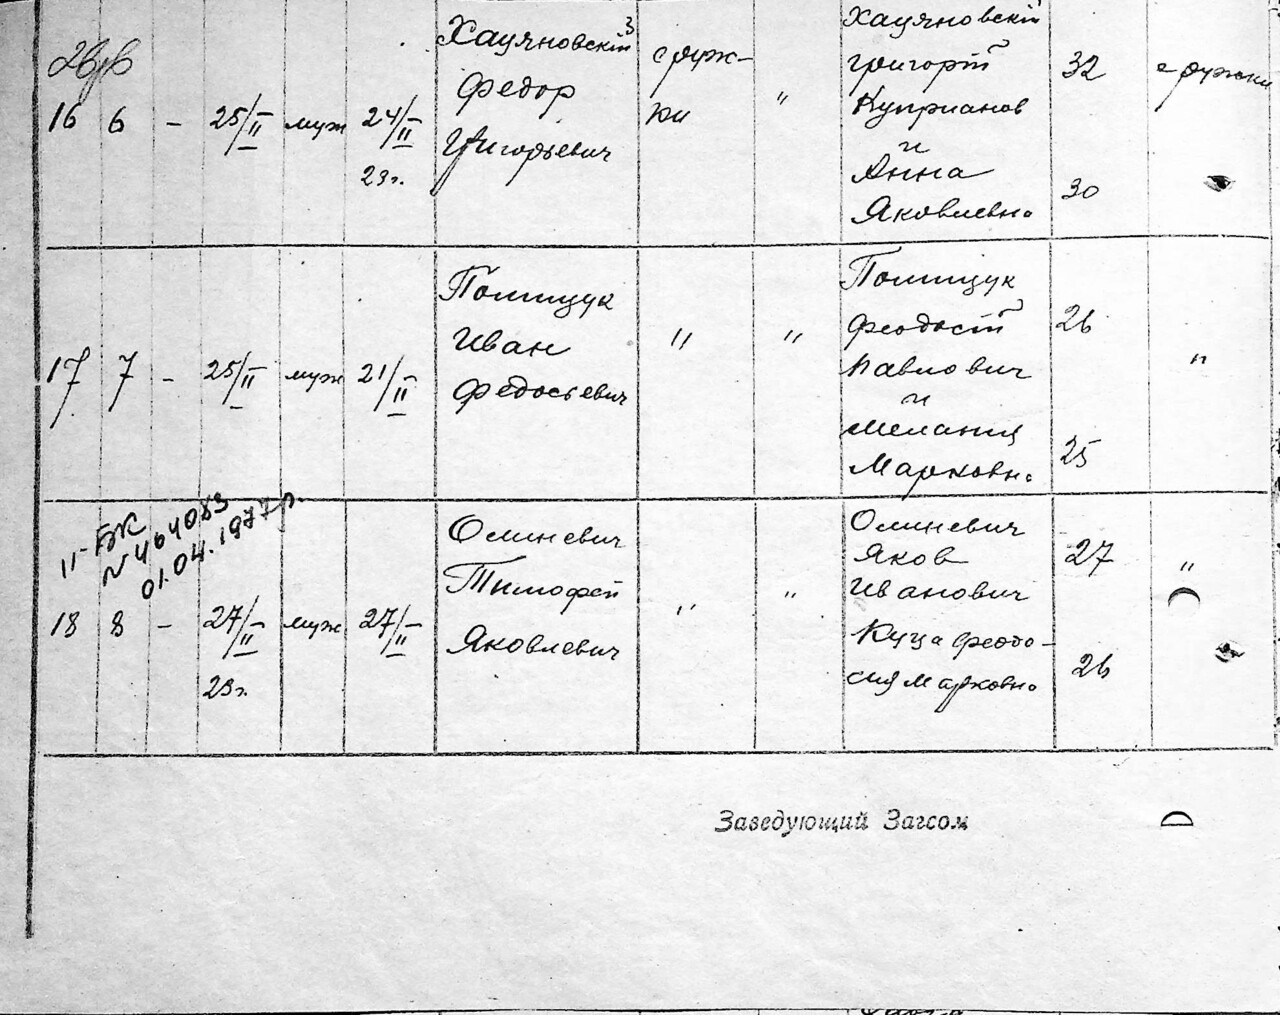 16 6 - 25/II муж 24/II 23г.
Хауяновскій
Федор
Григорьевич
с руж-
ки
"
Хауяновскій
Григорій
Куприанов
и
Анна
Яковлевн.
32
30
с ружки
17 7 - 25/II муж 21/II
Полищук
Иван
Федосьевич
"
"
Полищук
Феодосій
Павлович
и
Мелания
Марковн.
26
25
"
II-БК
N 464083
01.04.1977р.
18 8 - 27/II 23г. муж 27/II
Олиневич
Тимофей
Яковлевич
"
"
Олиневич
Яков
Иванович
Куца Феодо-
сия Марковн.
27
26
"
Заведующий Загсом